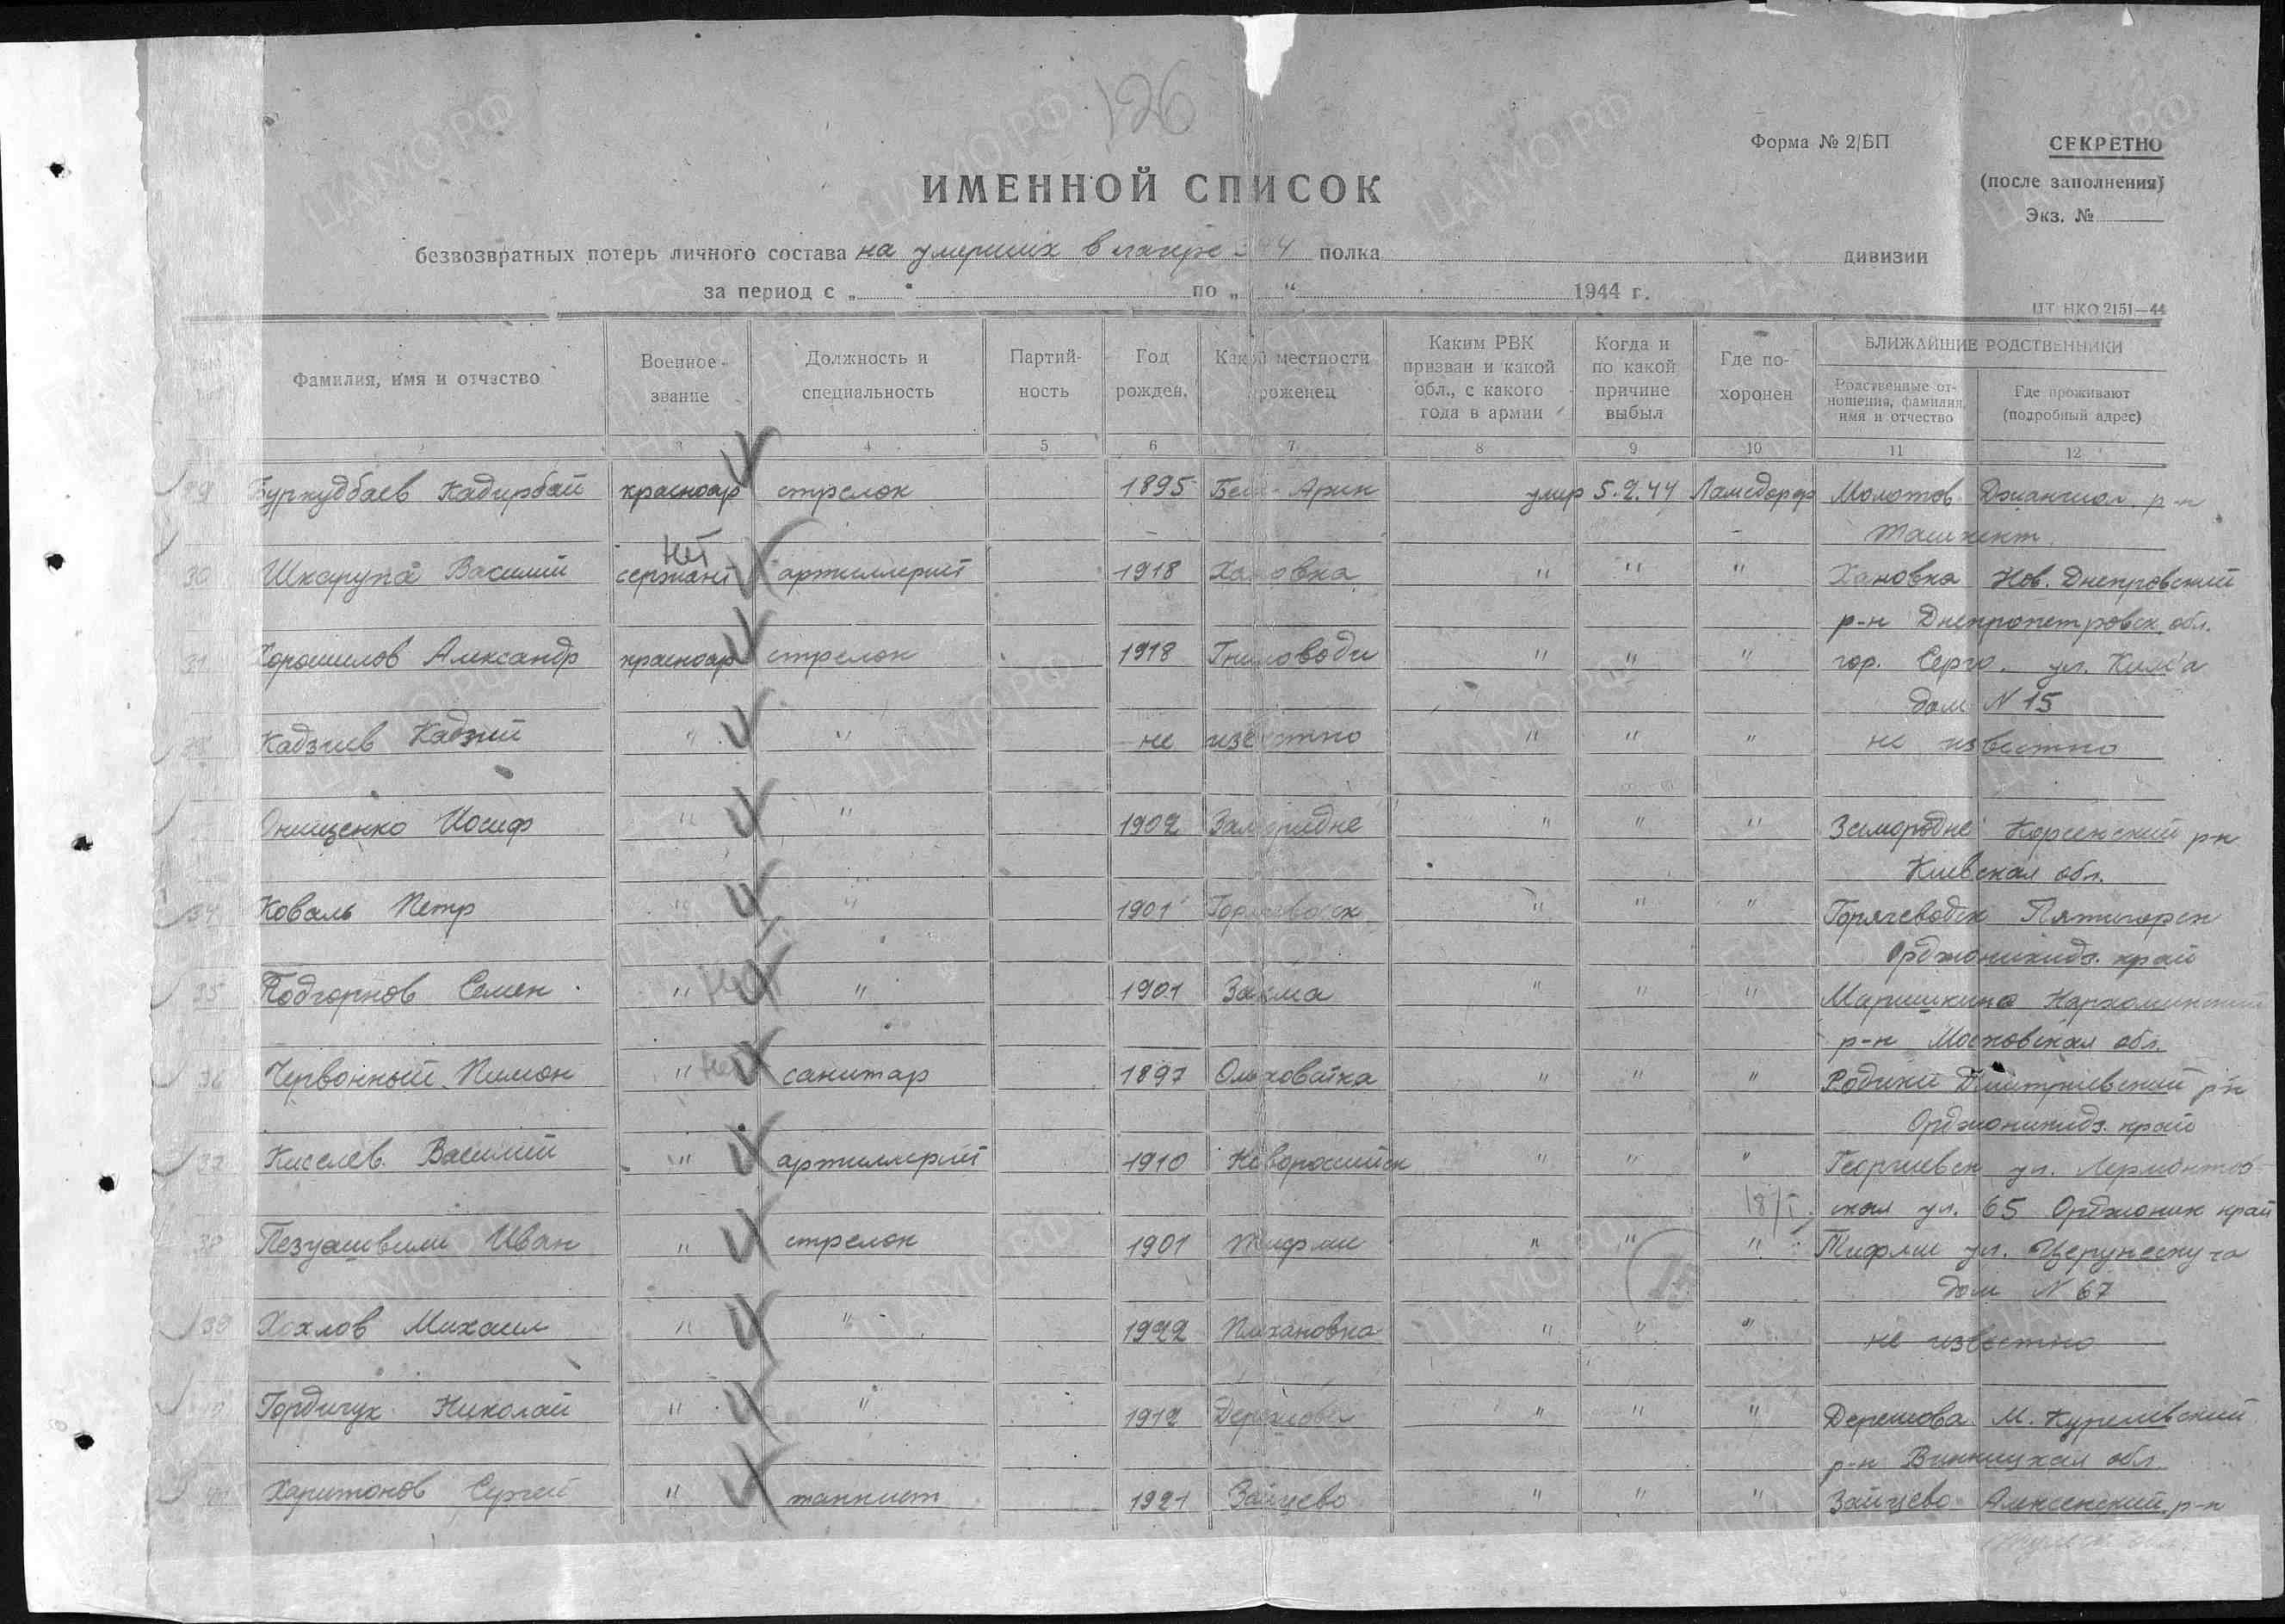 126
Форма № 2/БП
СЕКРЕТНО
(после заполнения)
Экз. №
ИМЕННОЙ СПИСОК
безвозвратных потерь личного состава на умерших в лагере 344 полка дивизии
за период с „ “ по „ “ 1944 г.
ЦТ НКО 2151—44
Фамилия, имя и отчество
Военное звание
Должность и специальность
Партийность
Год рожден.
Какой местности уроженец
Каким РВК призван и какой обл., с какого года в армии
Когда и по какой причине выбыл
Где похоронен
БЛИЖАЙШИЕ РОДСТВЕННИКИ
Родственные отношения, фамилия, имя и отчество
Где проживают (подробный адрес)
2 3 4 5 6 7 8 9 10 11 12
29 Буркудбаев Кадирбай красноар стрелок 1895 Беш-Арик умер 5.2.44 Ламсдорф Молотов Джангиол. р-н
Ташкент.
нет
30 Шкарупа Василий сержант артиллерист 1918 Хановка " " " Хановка Нов. Днепровский
р-н Днепропетровск. обл.
31 Хорошилов Александр красноар стрелок 1918 " " " гор. Серго. ул. Кима
дом N 15
32 Кадзиев Кадзий " " не известно " " " не известно
Онищенко Иосиф " " 1902 " " " Корсенский р-н
Киевская обл.
34 Коваль Петр " " 1901 Горячеводск " " " Горячеводск Пятигорск
Орджоникидз. край
35 Подгорнов Семен " нет " 1901 " " " Наркоминский
р-н Московская обл.
36 Червонный Пимон " нет санитар 1897 Ольховатка " " " Родики Дмитриевский р-н
Орджоникидз. край
37 Киселев Василий " артиллерист 1910 Новороссийск " " " Георгиевск ул. Лермонтов-
18/I ская ул. 65 Орджоник край
38 Пезуашвили Иван " стрелок 1901 Тифлис " " " Тифлис ул.
дом N 67
39 Хохлов Михаил " " 1922 Плехановка " " " не известно
Гордичук Николай " " 1912 Дерешова " " " Дерешова М. Курилівский
р-н Винницкая обл.
Харитонов Сергей " танкист 1921 Зайцево " " " Зайцево Алексенский р-н